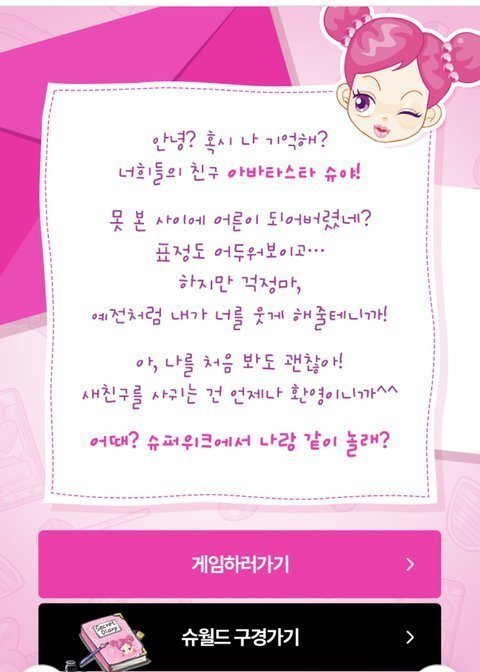 안녕? 혹시 나 기억해?
너희들의 친구 아바타스타 슈야!
못 본 사이에 어른이 되어버렸네?
표정도 어두워보이고…
하지만 걱정마,
예전처럼 내가 너를 웃게 해줄테니까!
아, 나를 처음 봐도 괜찮아!
새친구를 사귀는 건 언제나 환영이니까^^
어때? 슈퍼위크에서 나랑 같이 놀래?
게임하러가기
Secret
Diary
슈월드 구경가기